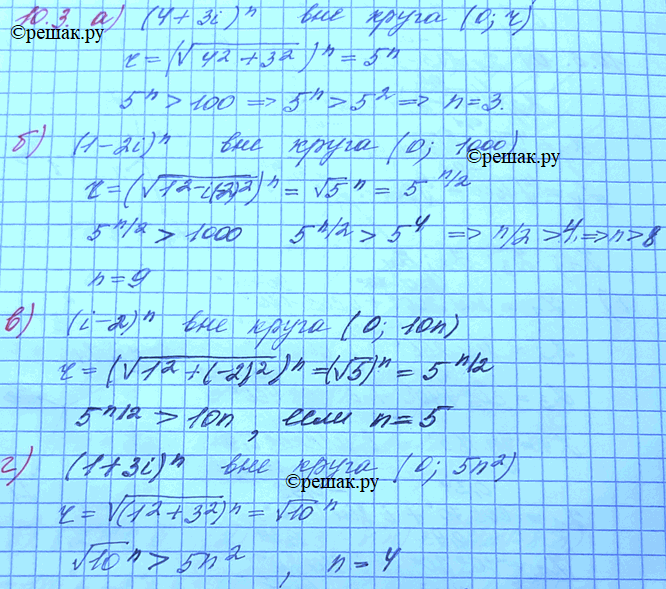 10.3. а) (4+3i)ⁿ вне круга (0; r)
©решак.ру
©решак.ру
r = (√(4²+3²))ⁿ = 5ⁿ
5ⁿ > 100 ⇒ 5ⁿ > 5² ⇒ n = 3.
б) (1-2i)ⁿ вне круга (0; 1000)
©решак.ру
r = (√(1²-i(2)²))ⁿ = √5ⁿ = 5^(n/2)
5^(n/2) > 1000 5^(n/2) > 5⁴ ⇒ n/2 > 4, ⇒ n > 8
n = 9
в) (i-2)ⁿ вне круга (0; 10n)
r = (√(1²+(-2)²))ⁿ = (√5)ⁿ = 5^(n/2)
5^(n/2) > 10n, если n = 5
г) (1+3i)ⁿ вне круга (0; 5n²)
©решак.ру
r = √(1²+3²)ⁿ = √10ⁿ
√10ⁿ > 5n², n = 4